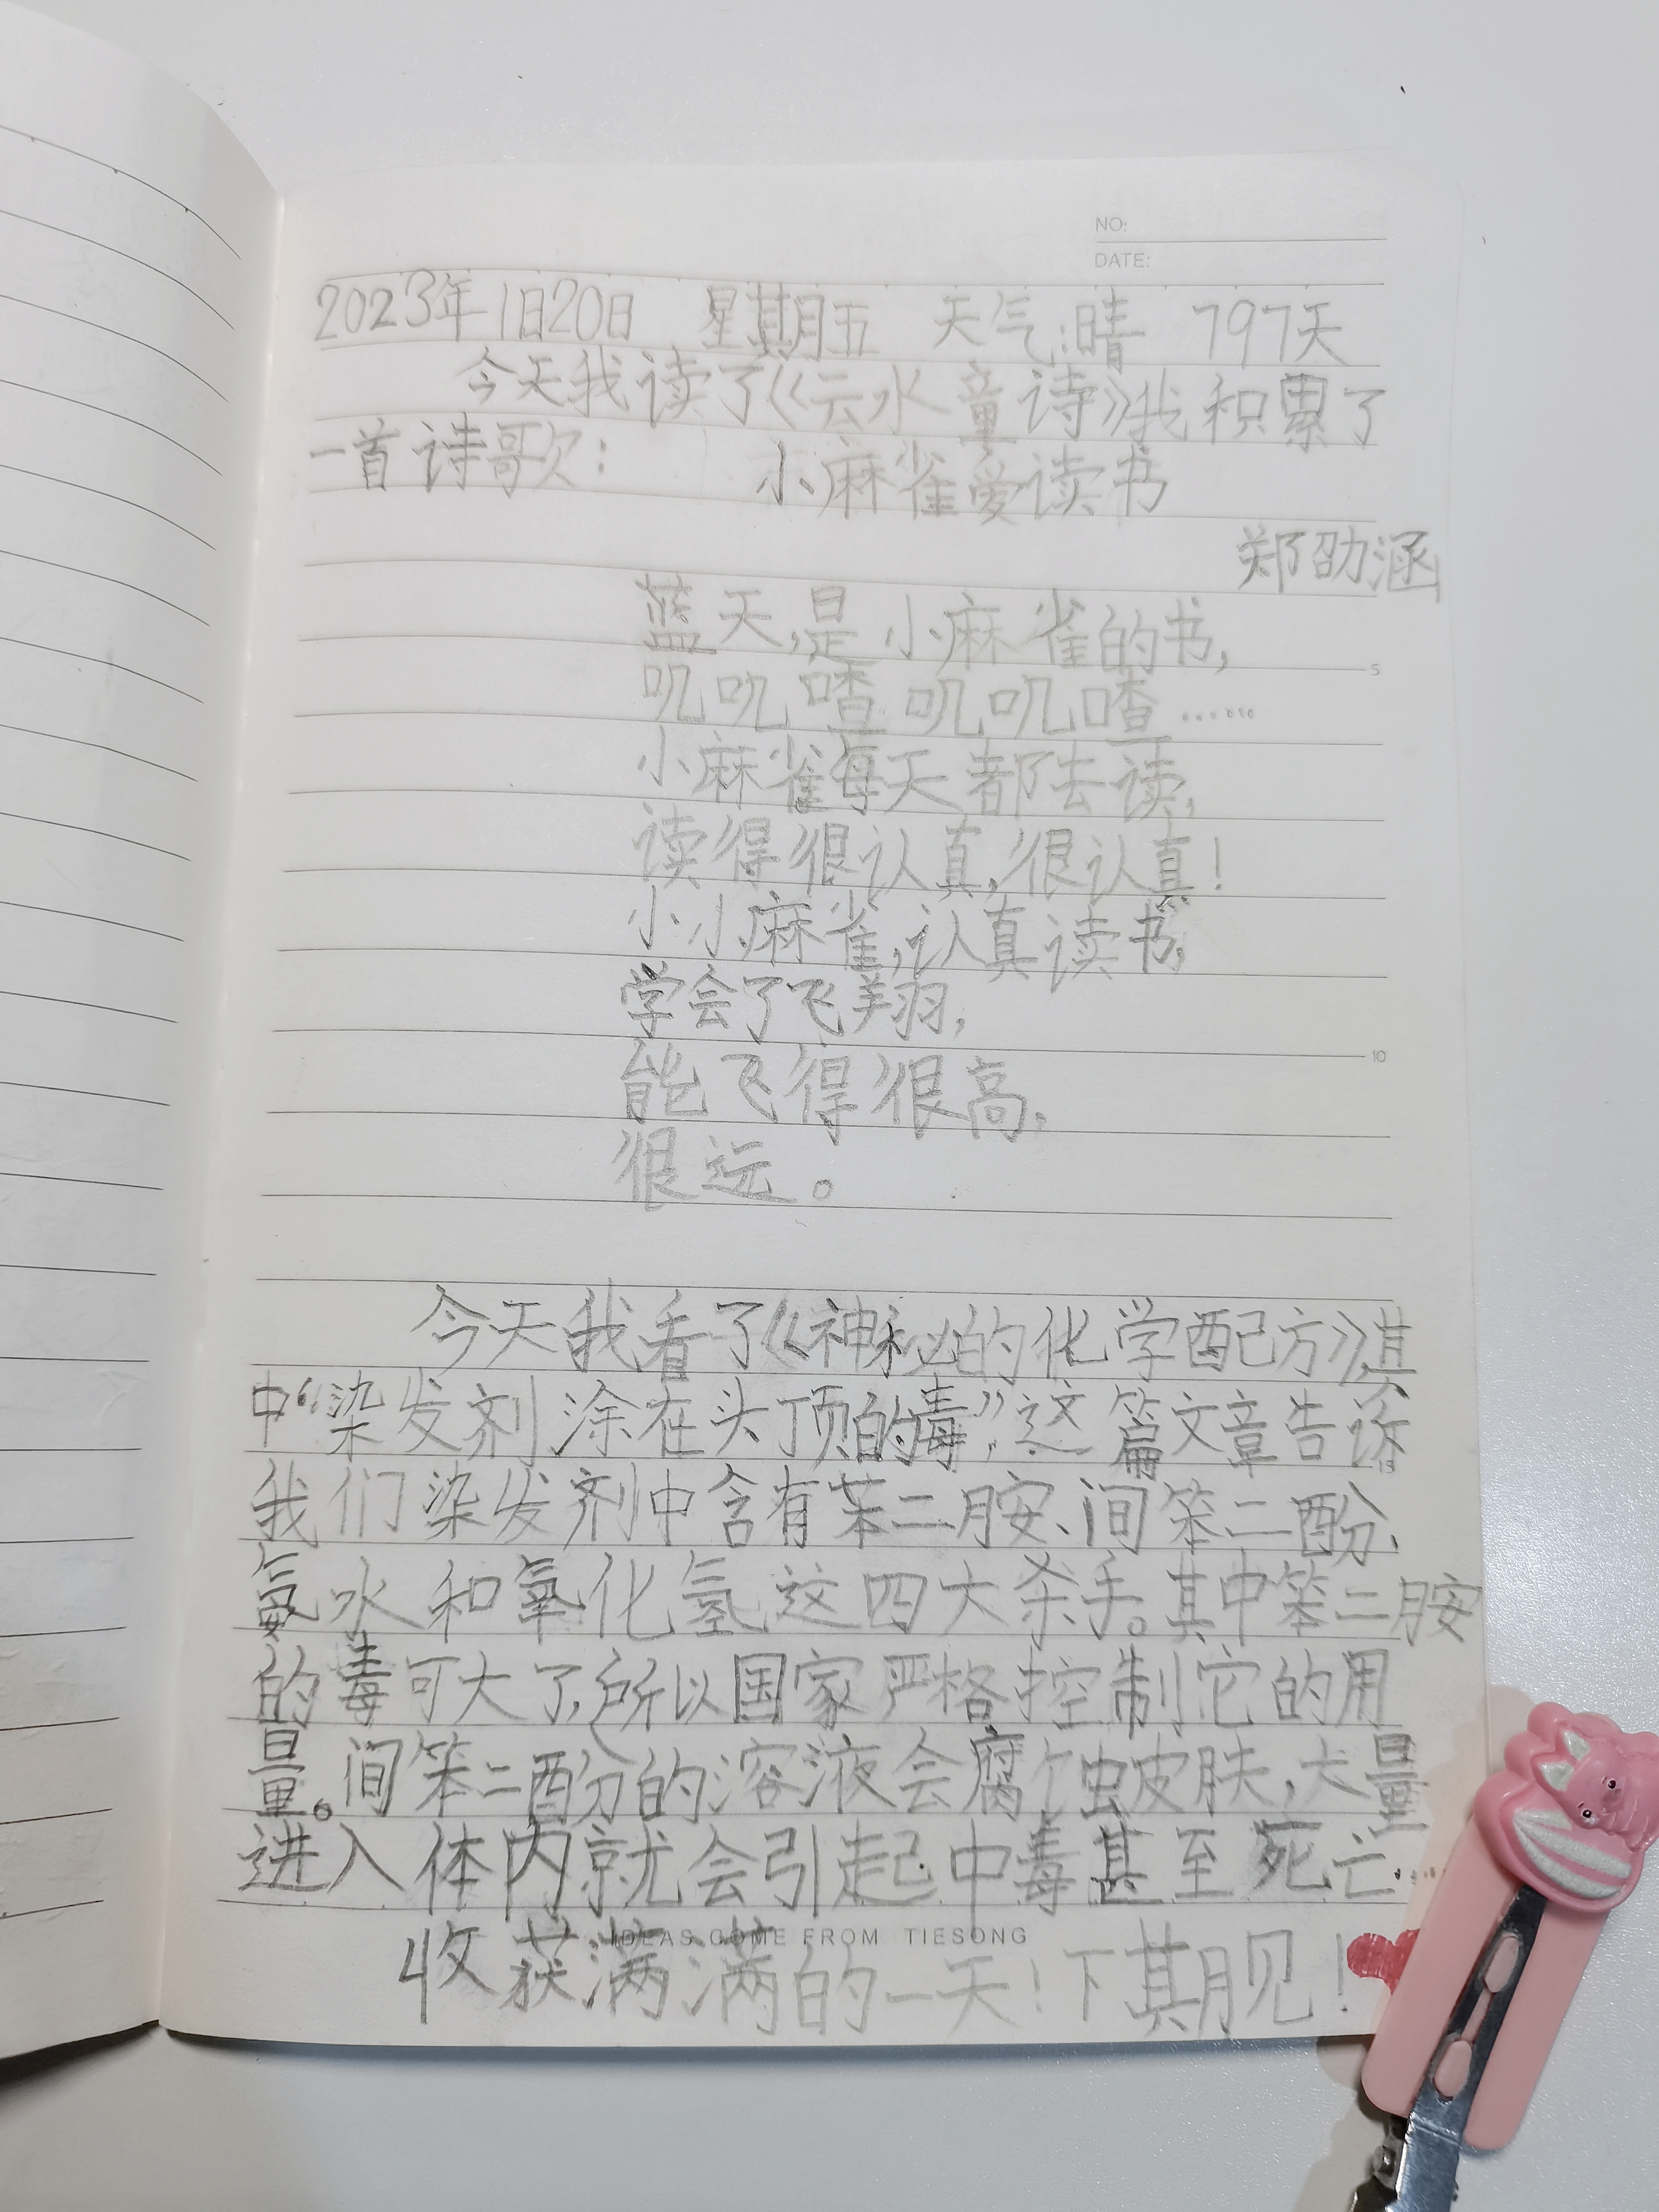 NO:
DATE:
2023年1日20日 星期五 天气:晴 797天
今天我读了《云水童诗》我积累了
一首诗歌: 小麻雀爱读书
郑劭涵
蓝天,是小麻雀的书,
叽叽喳叽叽喳……
小麻雀每天都去读,
读得很认真,很认真!
小小麻雀,认真读书,
学会了飞翔,
能飞得很高,
很远。
今天我看了《神秘的化学配方》其
中“染发剂涂在头顶的毒”,这篇文章告诉
我们染发剂中含有苯二胺、间笨二酚、
氨水和氧化氢这四大杀手。其中笨二胺
的毒可大了,所以国家严格控制它的用
量。间笨二酚的溶液会腐蚀皮肤,大量
进入体内就会引起中毒甚至死亡……
收获满满的一天!下期见!
IDEAS COME FROM TIESONG
5
10